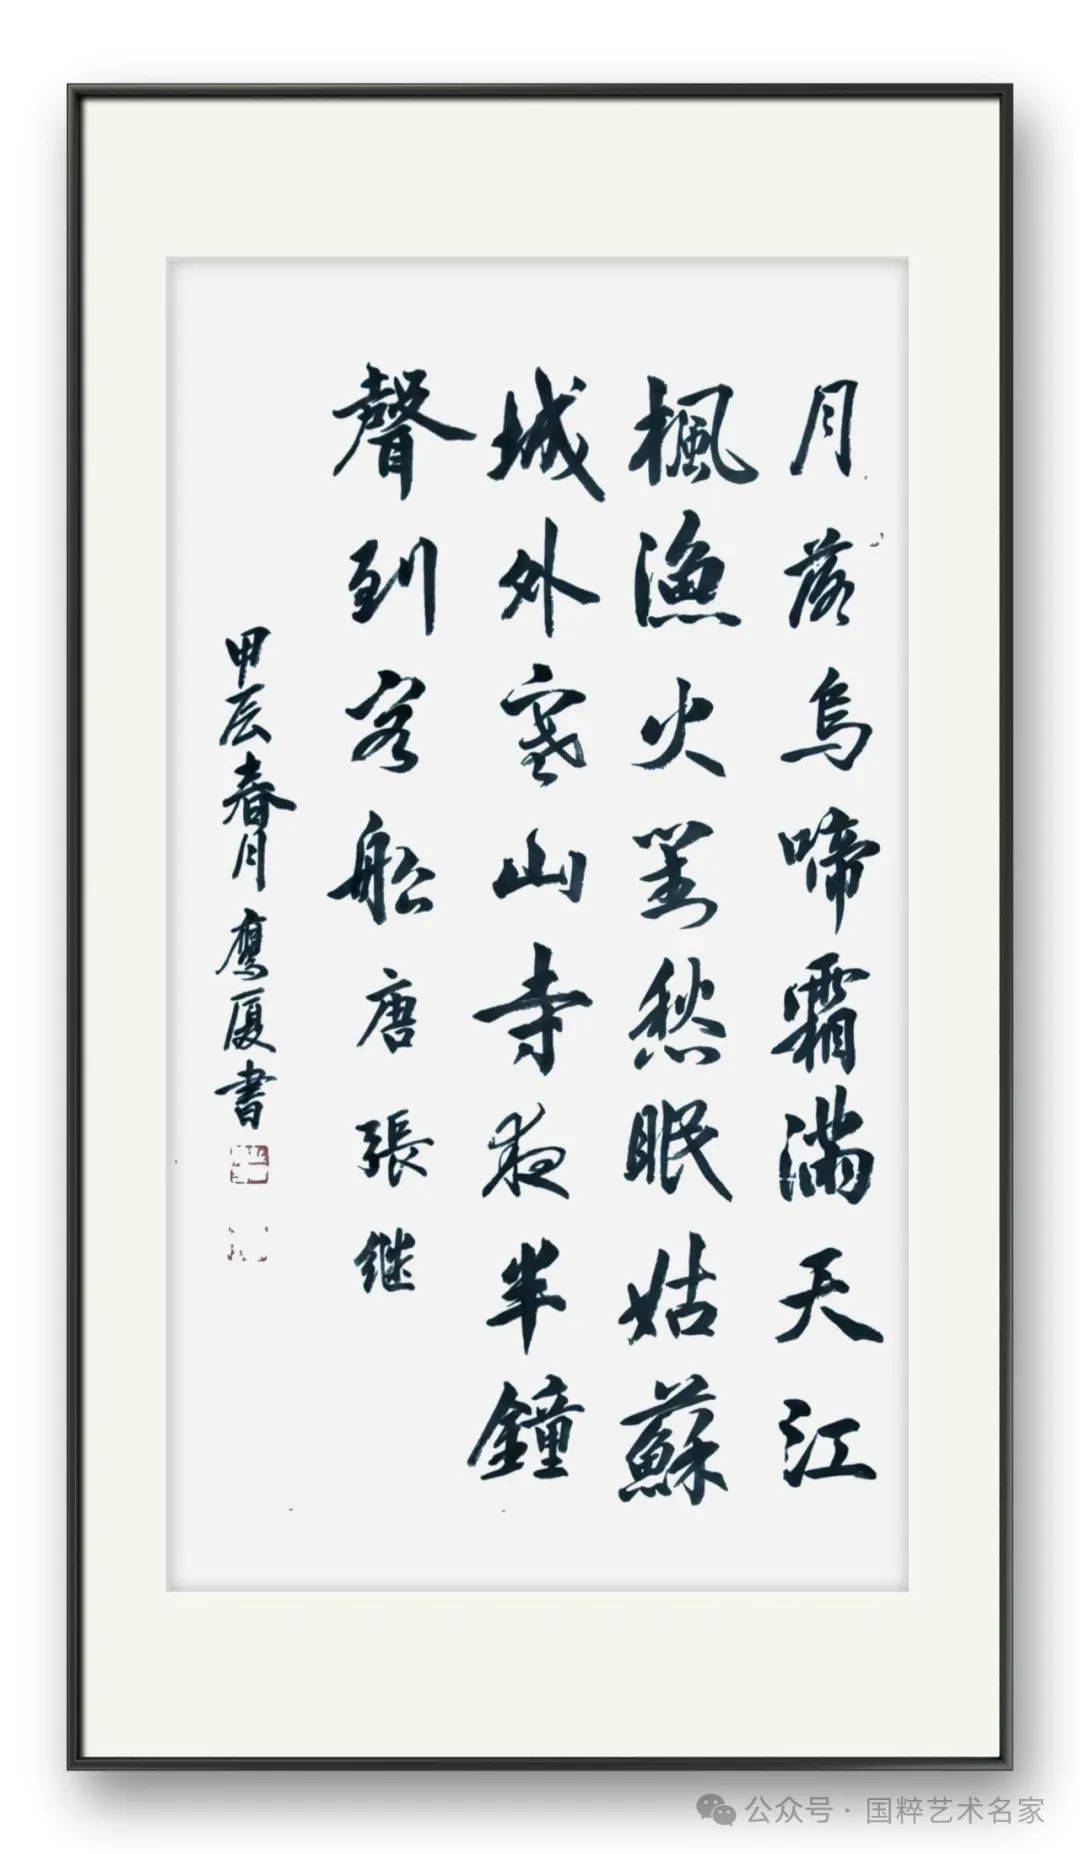 月落烏啼霜滿天江
楓漁火對愁眠姑蘇
城外寒山寺夜半鐘
聲到客船唐張继
甲辰春月鷹厦書
公众号 · 国粹艺术名家